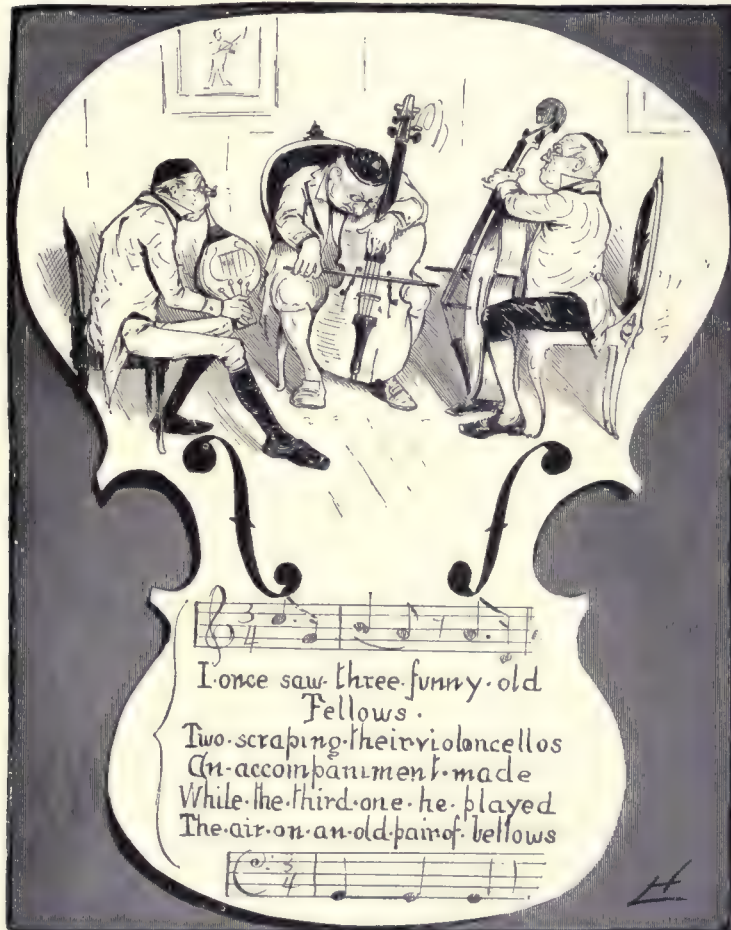 3
4
I·once saw·three·funny·old
Fellows·
Two·scraping·their·violoncellos
An·accompaniment·made
While·the·third·one·he·played
The·air·on·an·old·pair·of·bellows
3
4